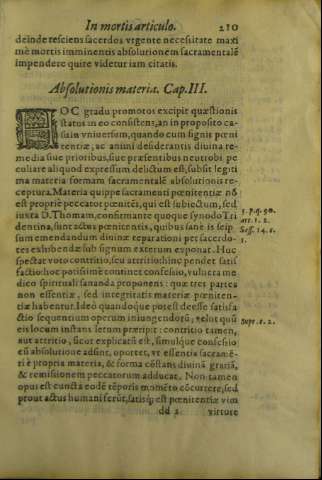 In mortis articulo. 210
deinde resciens sacerdos vrgente necessitate maxi
mè mortis imminentis absolutionem sacramentalē
impendere quite videtur iam citatis.
Absolutionis materia. Cap. III.
HOC gradu promotos excipit quæstionis
status in eo consistens, an in proposito ca-
su in vniuersum, quando cum signis pœni
tentiæ, ac animi desiderantis diuina re-
media siue prioribus, siue præsentibus neutrobi pe
culiare aliquod expressum delictum est, subsit legiti
ma materia formam sacramentalē absolutionis re-
ceptura. Materia quippe sacramenti pœnitentiæ nō
est propriè peccator pœnitēs, qui est subiectum, sed
iuxta D. Thomam, confirmante quoque synodo Tri
dentina, sunt actus pœnitentis, quibus sanè is seip
sum emendandum diuinæ reparationi per sacerdo-
tes exhibendæ sub signum externum exponat. Huc
spectat voto contritio, seu attritio: hinc pendet satis
factio: hoc potissimè continet confessio, vulnera me
dico spirituali sananda proponens: quæ tres partes
non essentiæ, sed integritatis materiæ pœniten-
tiæ habentur. Ideo quandoque potest deesse satisfa
ctio sequentium operum iniungendorū; velut quū
eis locum instans letum præripit: contritio tamen,
aut attritio, sicut explicatū est, simulque confessio
cū absolutione adsint, oportet, vt essentia sacramē-
ti è propria materia, & forma cōstans diuinā gratiā,
& remissionem peccatorum adducat. Non tamen
opus est cuncta eodē tēporis momēto cōcurrere, sed
prout actus humani ferūt, satis ip est pœnitentiæ vim
dd 2 virtute
3. p. q. 90.
art. 1. 2.
Sess. 14. c.
3.
Supr. c. 2.